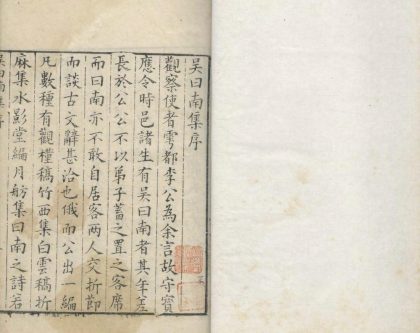 吴曰南集序
觀察使者雩都李公為余言故守寳
應令時邑諸生有吴曰南者其年差
長於公公不以弟子蓄之置之客席
而曰南亦不敢自居客兩人交折節
而談古文辭甚洽也俄而公出一編
凡數種有觀槿稿竹西集白雲稿折
麻集水影堂編月舫集曰南之詩若
吴曰南集序